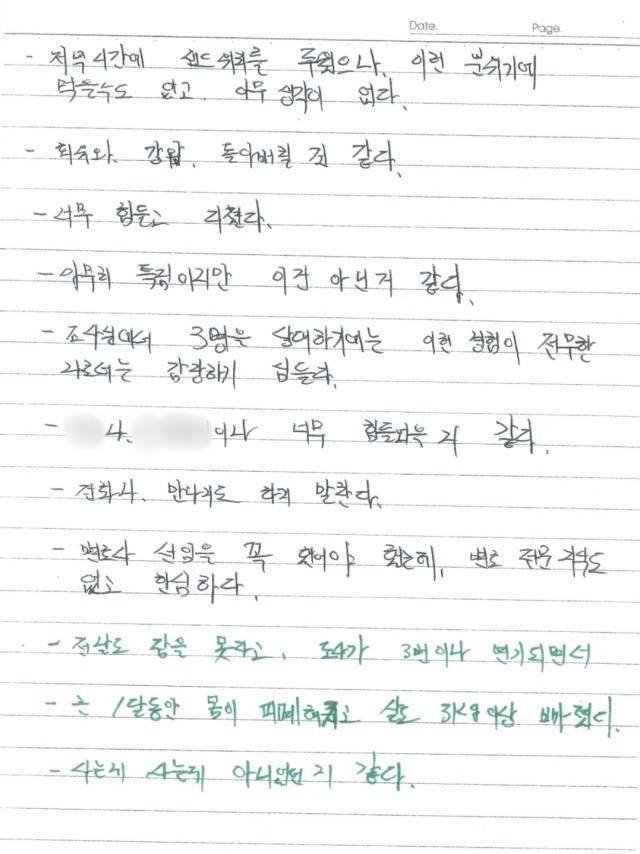 Date. Page.
- 저녁시간에 샌드위치를 주었으나, 이런 분위기에
먹을수도 없고, 아무 생각이 없다.
- 회유와, 강압, 돌아버릴 것 같다.
- 너무 힘들고 지쳤다.
- 아무리 특검이지만 이건 아닌거 같다.
- 조사실에서 3명을 상대하기에는 이런 경험이 전무한
나로서는 감당하기 힘들다.
- 나, 이나 너무 힘들어올 거 같다.
- 전화나, 만나지도 하지 말란다.
- 변호사 선임을 꼭 했어야 했는데, 변호 전문 지식도
없고 한심하다.
- 잠을 못자고, 조사가 3번이나 연기되면서
- 근 1달동안 몸이 피폐해지고 살도 3kg이상 빠졌다.
- 사는게 사는게 아니었던 거 같다.